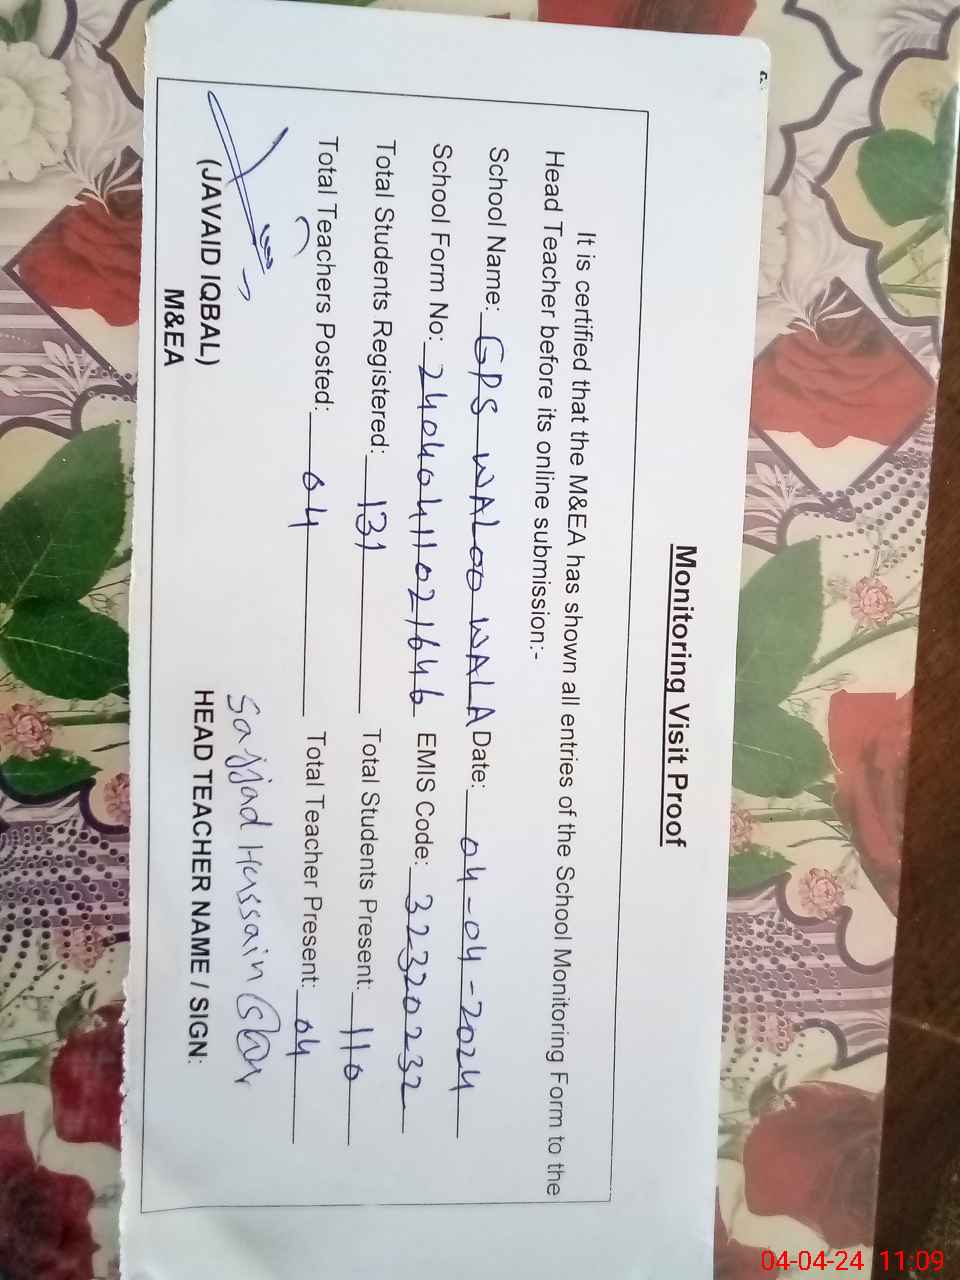 Monitoring Visit Proof
It is certified that the M&EA has shown all entries of the School Monitoring Form to the
Head Teacher before its online submission:-
School Name: GPS WALOO WALA Date: 04-04-2024
School Form No: 24040411021646 EMIS Code: 32320232
Total Students Registered: 131 Total Students Present: 110
Total Teachers Posted: 04 Total Teacher Present: 04
Sajjad Hussain
(JAVAID IQBAL) HEAD TEACHER NAME / SIGN:
M&EA
04-04-24 11:09